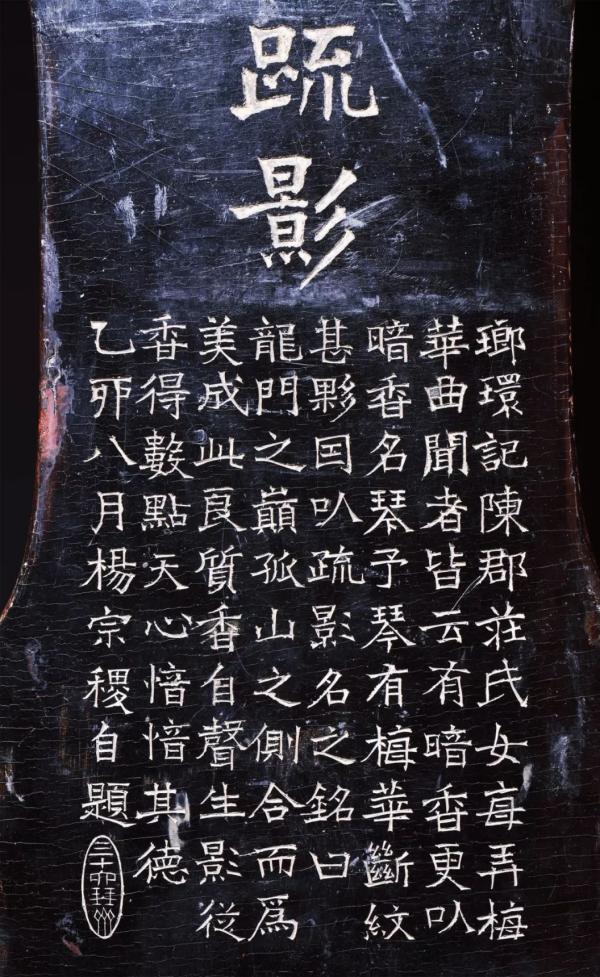 疏影
瑯環記陳郡莊氏女每弄梅
華曲聞者皆云有暗香更以
暗香名琴予琴有梅華斷紋
甚夥因以疏影名之銘曰
龍門之巔孤山之側合而爲
美成此良質香自聲生影從
香得數點天心愔愔其德
乙丣八月楊宗稷自題